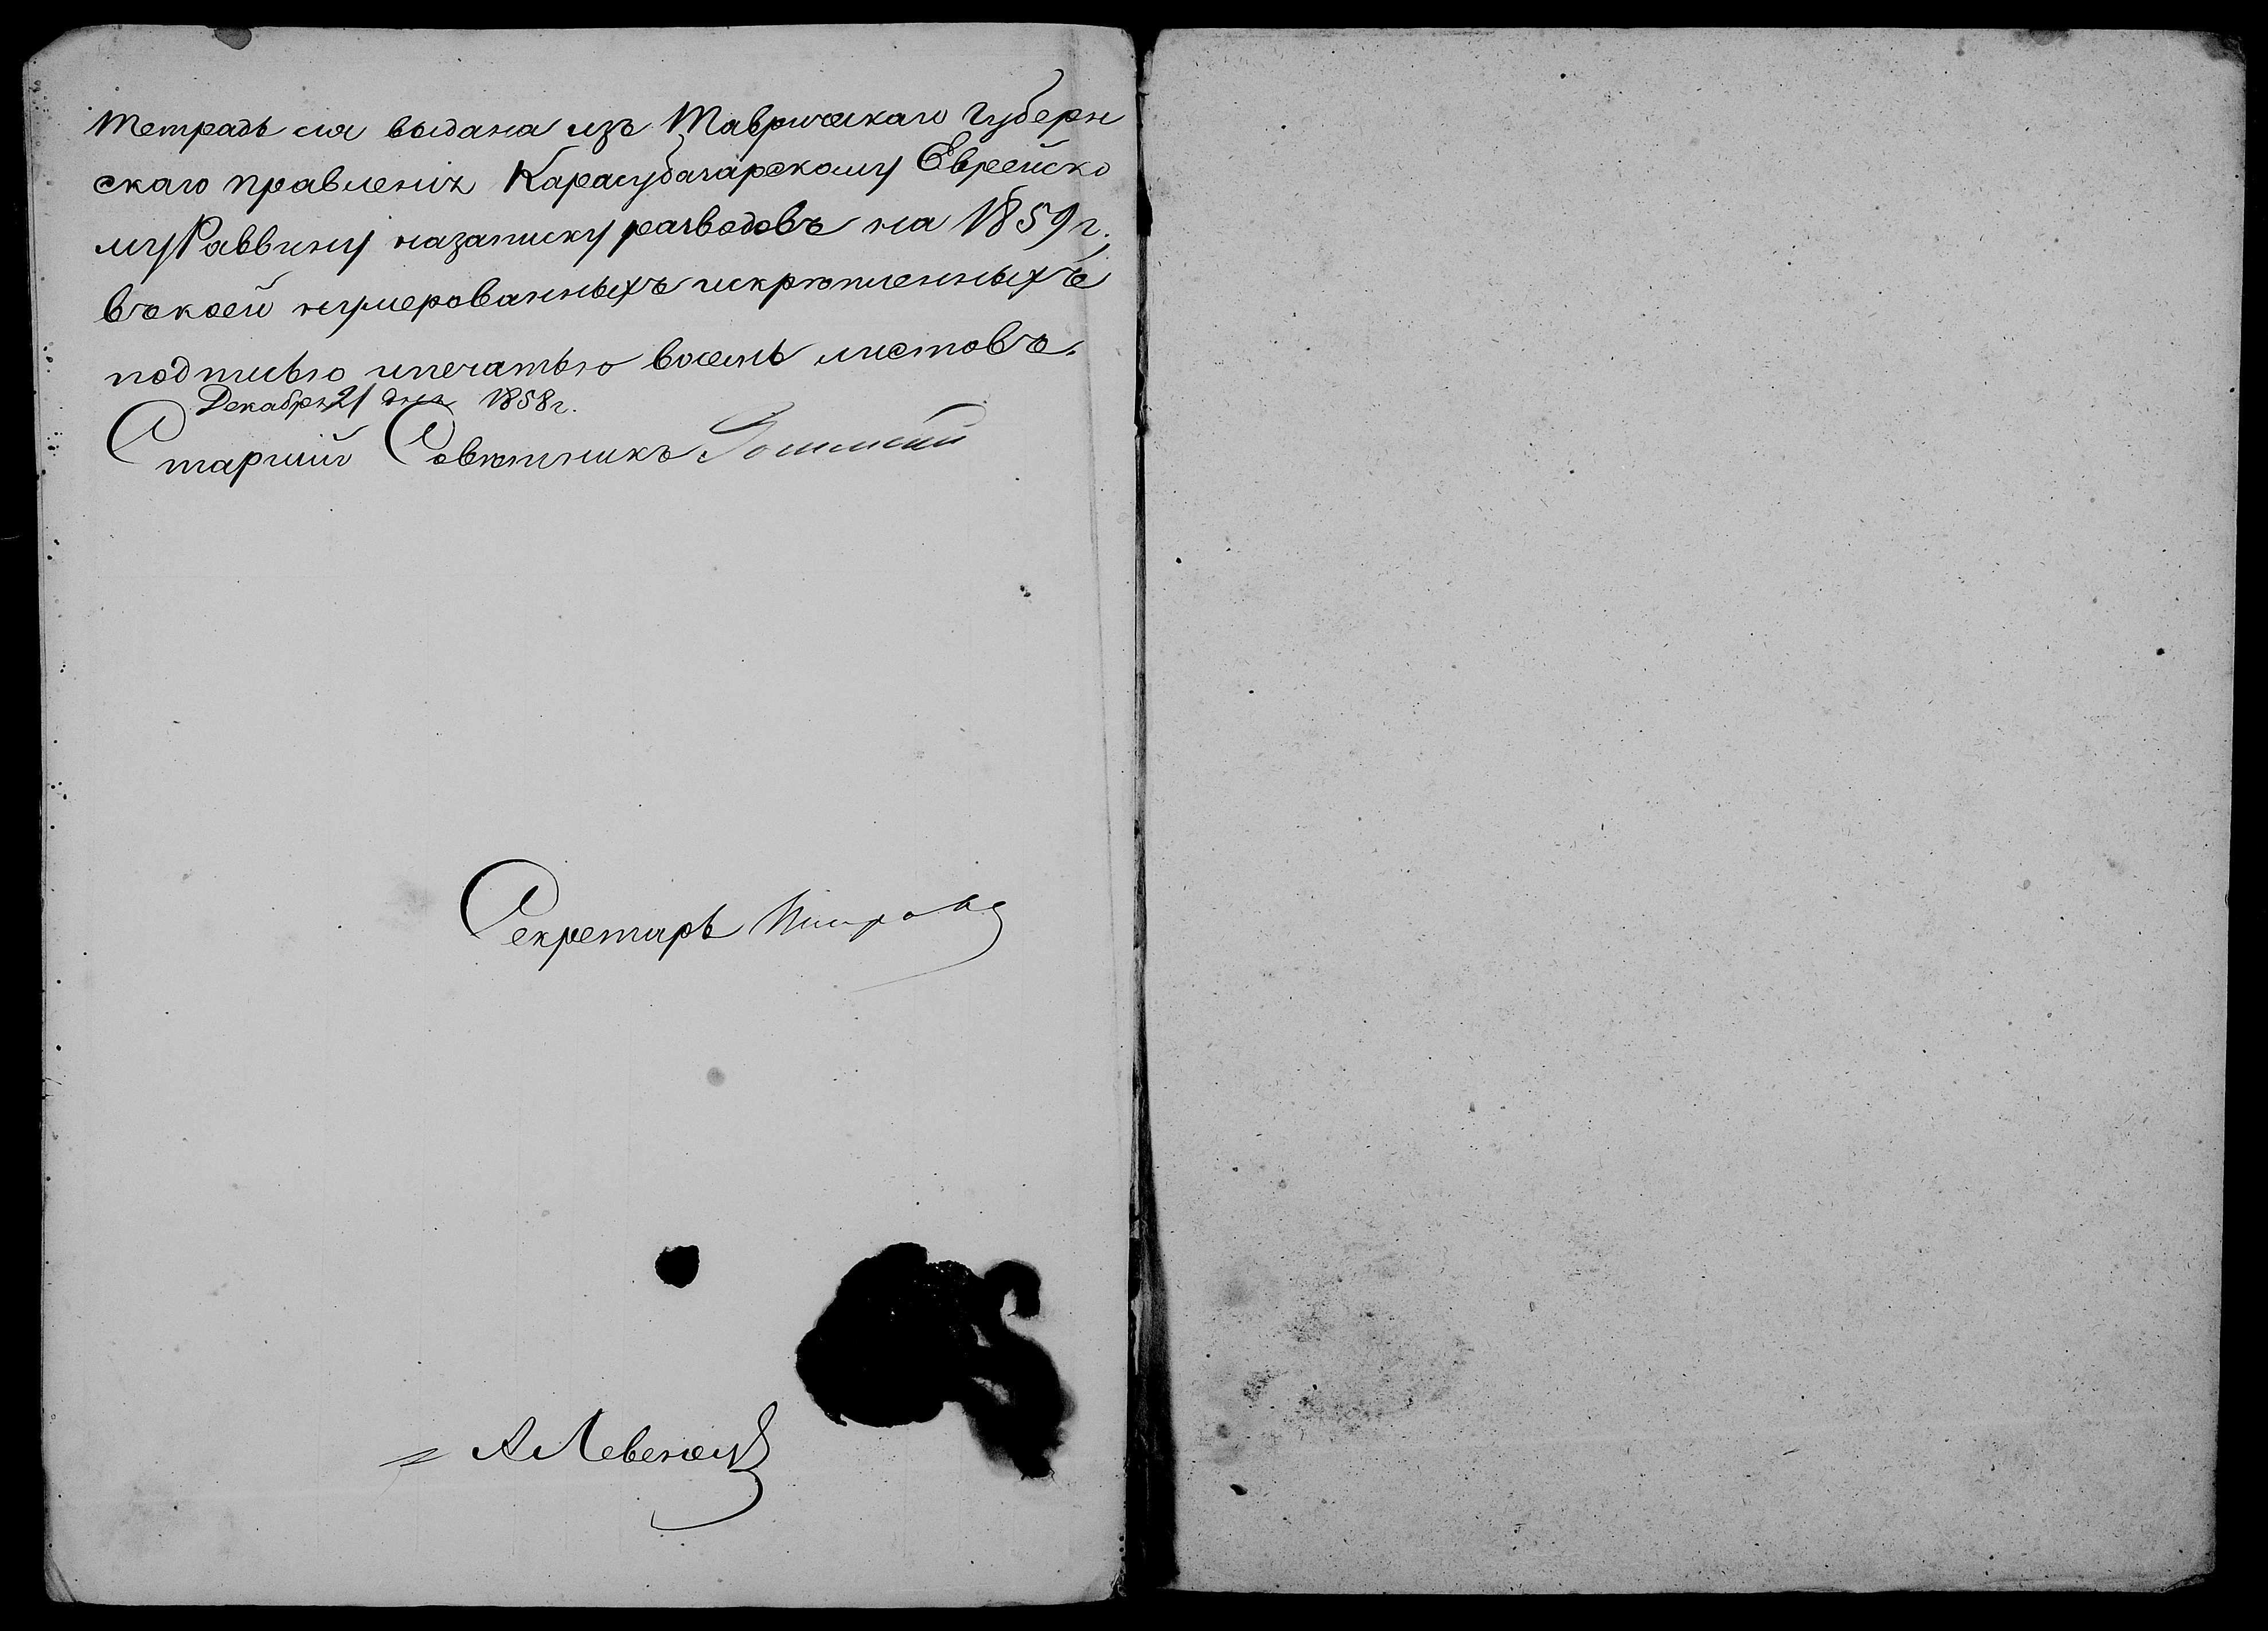 Тетрадь сія выдана изъ Таврическаго Губерн
скаго правленія Карасубазарскому Еврейско
му Раввину назаписку разводовъ на 1859 г.,
въкоей нумерованныхъ искрѣпленныхъ
подписью ипечатью восемь листовъ.
Декабря 21 дня 1858 г.
Старший Совѣтникъ
Секретарь